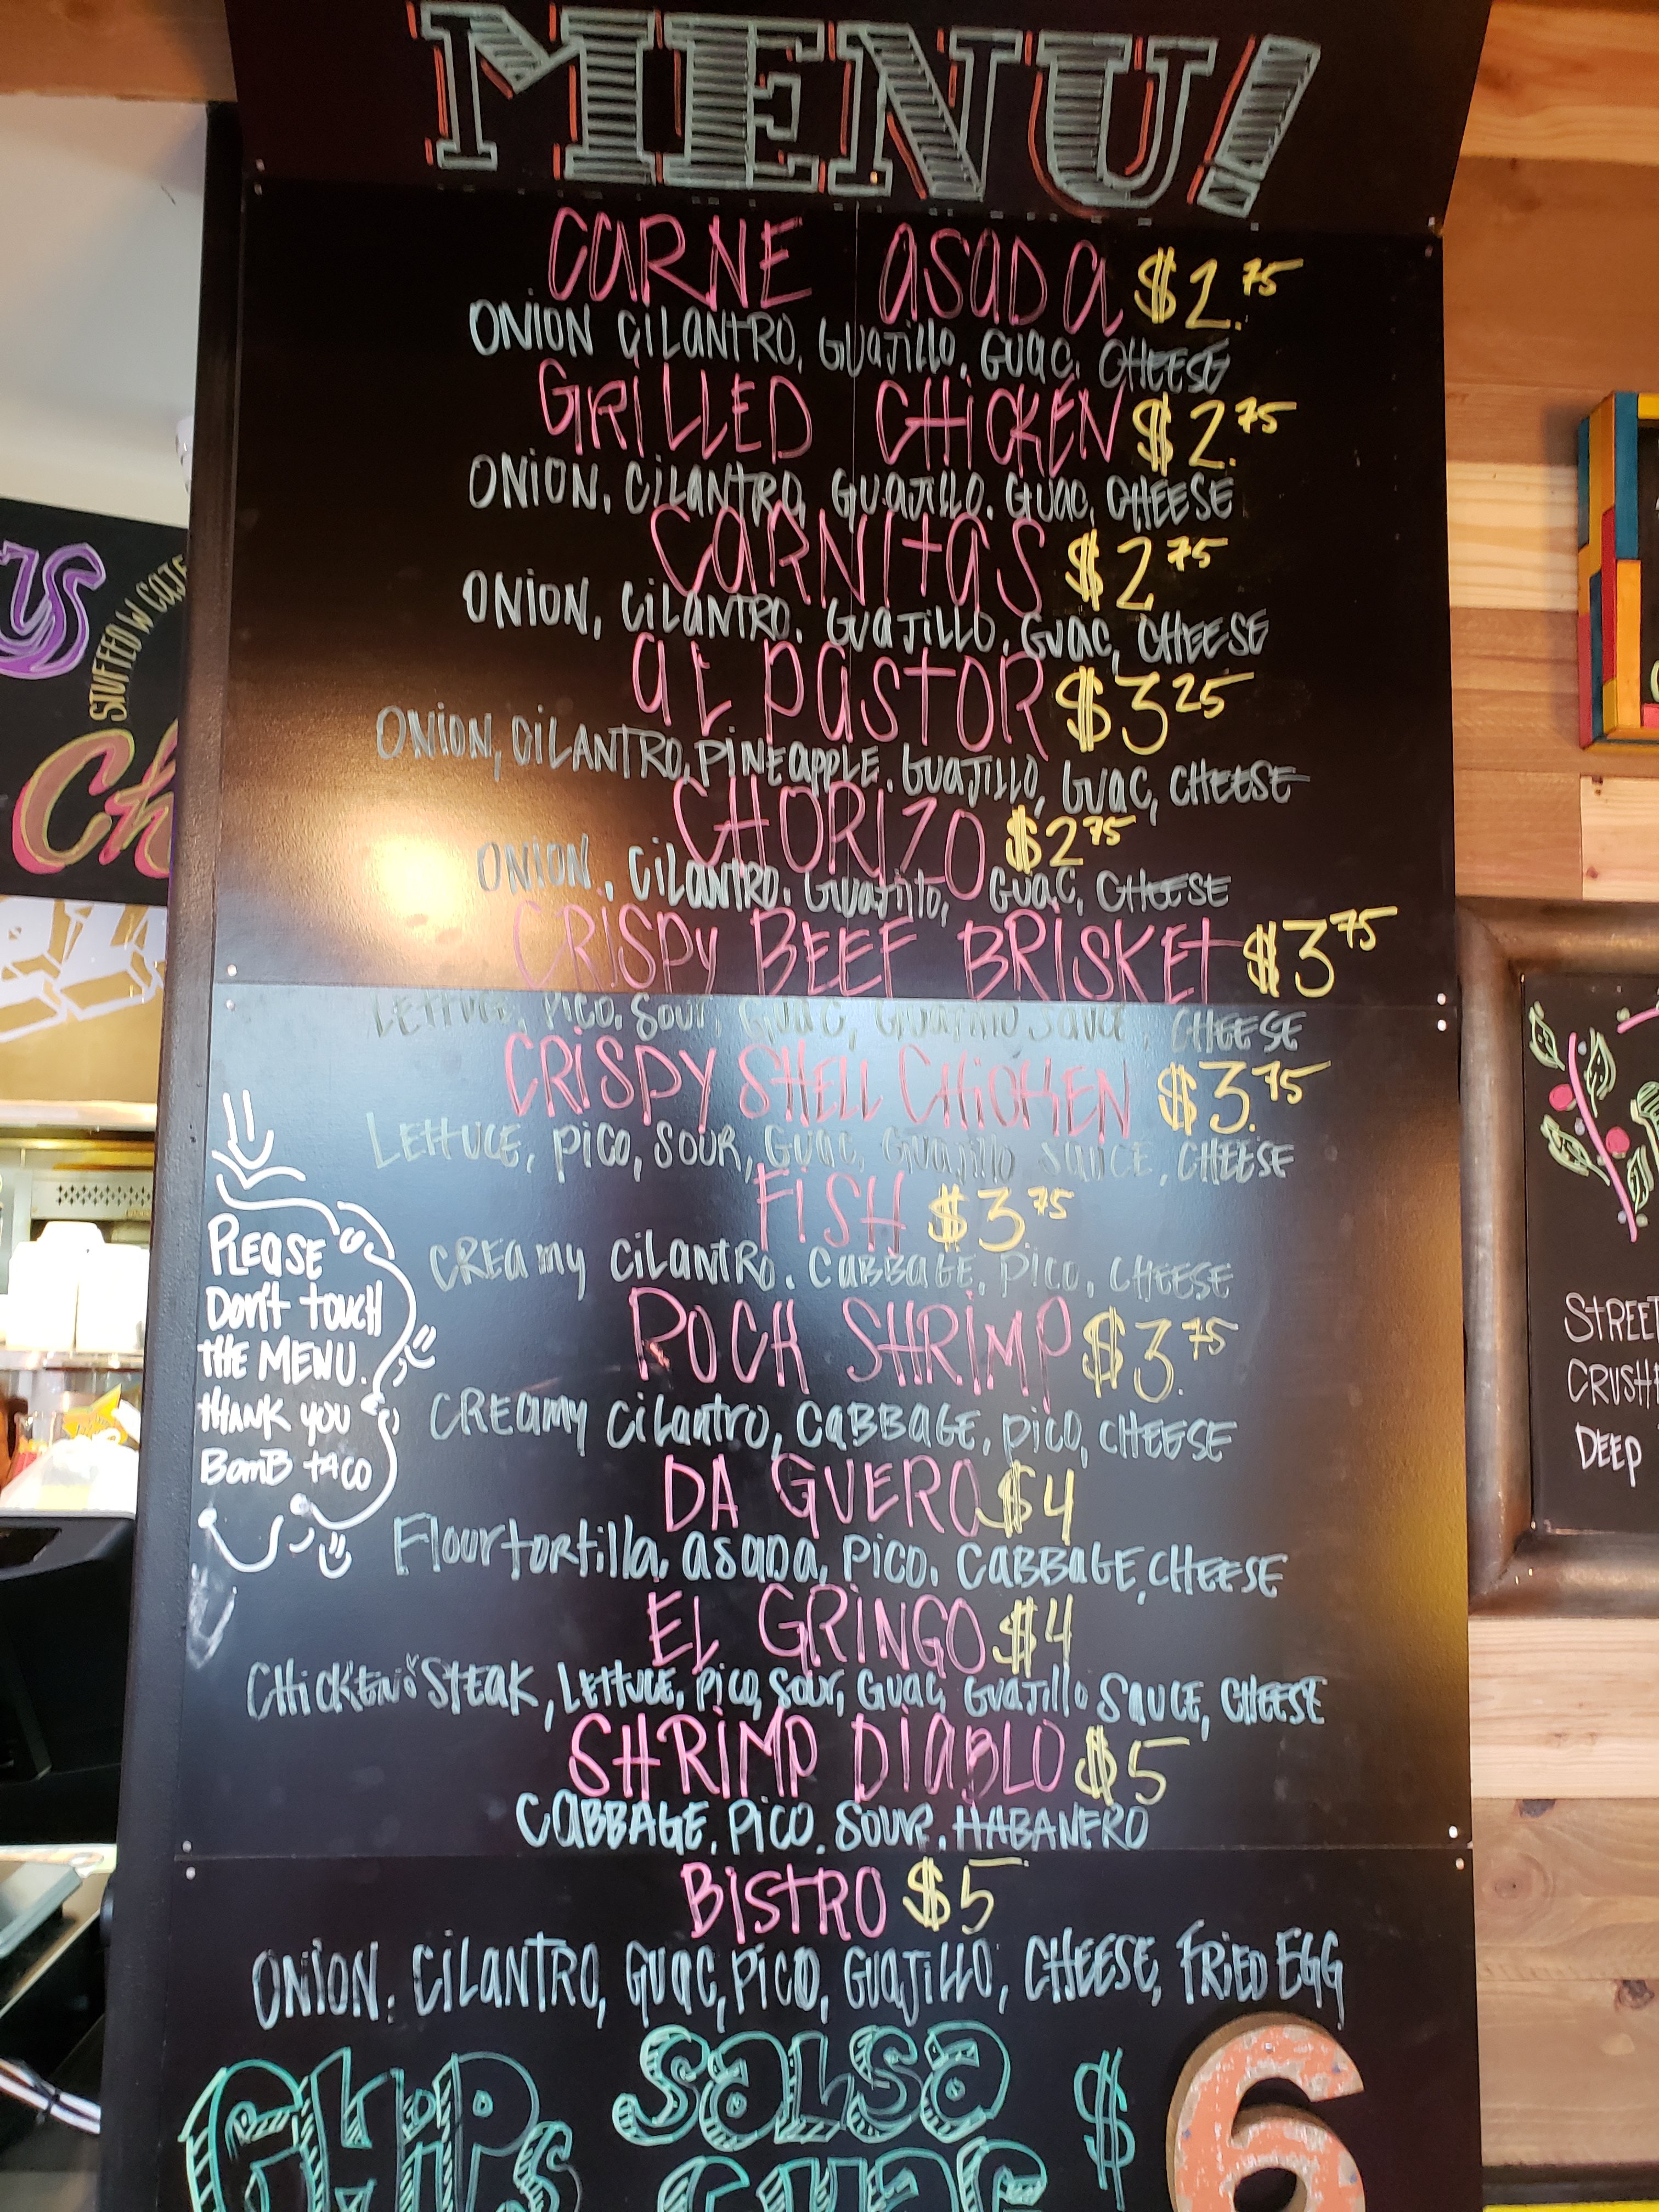 MENU!
CARNE ASADA $2.75
ONION CILANTRO, GUAJILLO, GUAC, CHEESE
GRILLED CHICKEN $2.75
ONION, CILANTRO, GUAJILLO, GUAC, CHEESE
CARNITAS $2 75
ONION, CILANTRO, GUAJILLO, GUAC, CHEESE
AL PASTOR $3 25
ONION, CILANTRO, PINEAPPLE, GUAJILLO, GUAC, CHEESE
CHORIZO $2 75
ONION, CILANTRO, GUAJILLO, GUAC, CHEESE
CRISPY BEEF BRISKET $3 75
LETTUCE, PICO, SOUR, GUAC, GUAJILLO SAUCE, CHEESE
CRISPY SHELL CHICKEN $3.75
LETTUCE, PICO, SOUR, GUAC, GUAJILLO SAUCE, CHEESE
FISH $3 75
CREAMY CILANTRO, CABBAGE, PICO, CHEESE
ROCK SHRIMP $3.75
CREAMY CILANTRO, CABBAGE, PICO, CHEESE
DA GUERO $4
Flour tortilla, ASADA, PICO, CABBAGE, CHEESE
EL GRINGO $4
CHICKEN & STEAK, LETTUCE, PICO, SOUR, GUAC, GUAJILLO SAUCE, CHEESE
SHRIMP DIABLO $5
CABBAGE, PICO, SOUR, HABANERO
BISTRO $5
ONION, CILANTRO, GUAC, PICO, GUAJILLO, CHEESE, FRIED EGG
CHIPS SALSA $6
GUAC
PLEASE
DON'T TOUCH
THE MENU.
THANK YOU
BOMB TACO
STUFFED W
Ch
STREET
CRUSH
DEEP